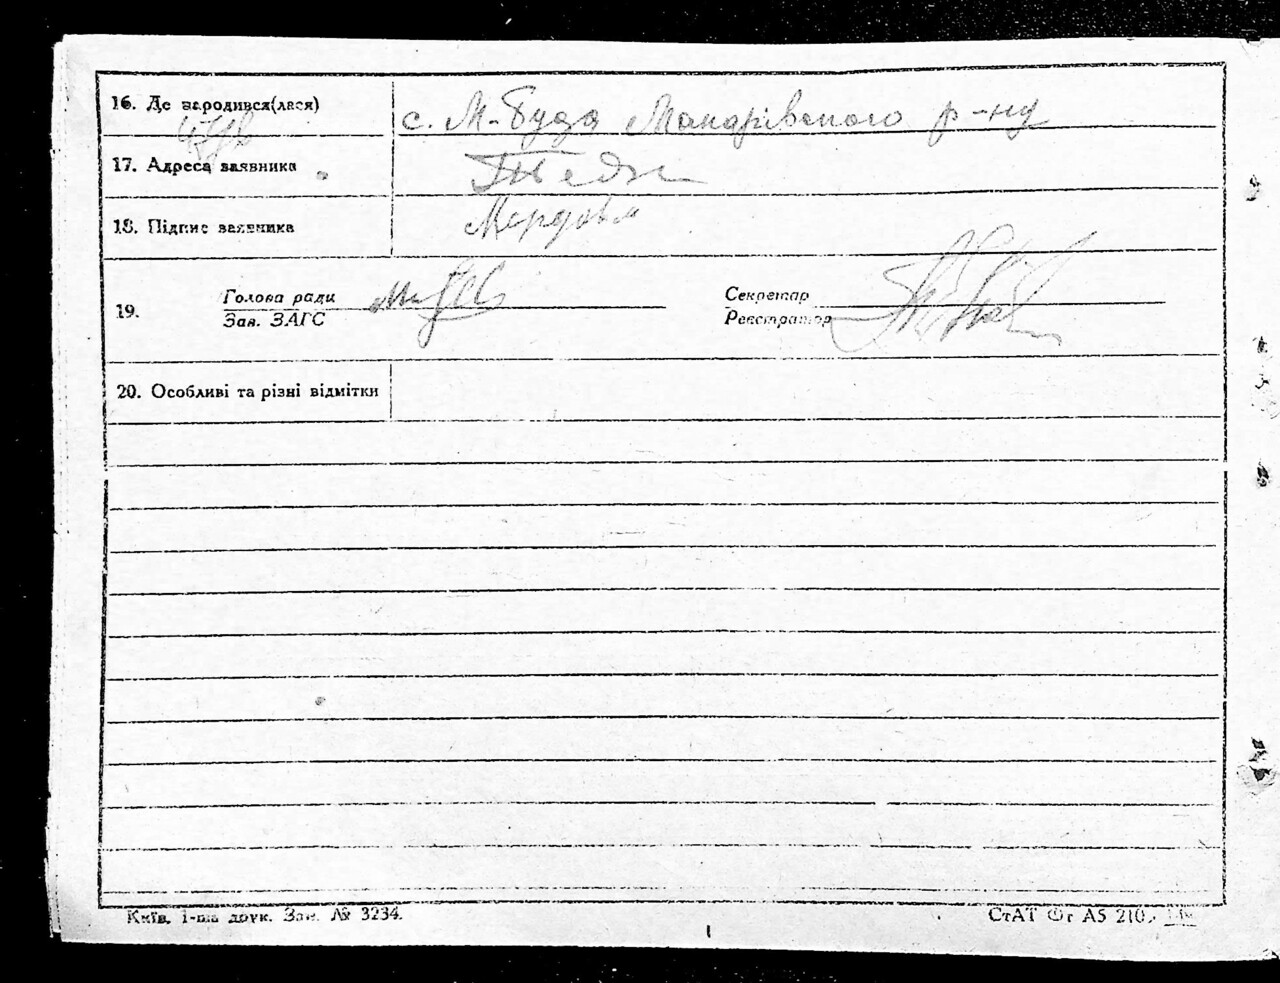 16. Де народився(лася) с. М-Буда Макарівского р-ну
17. Адреса заявника
18. Підпис заявника
19. Голова ради Секретар
Зав. ЗАГС Реєстратор
20. Особливі та різні відмітки
Київ, 1-ша друк. Зам. № 3234.
СтАТ Фг А5 210